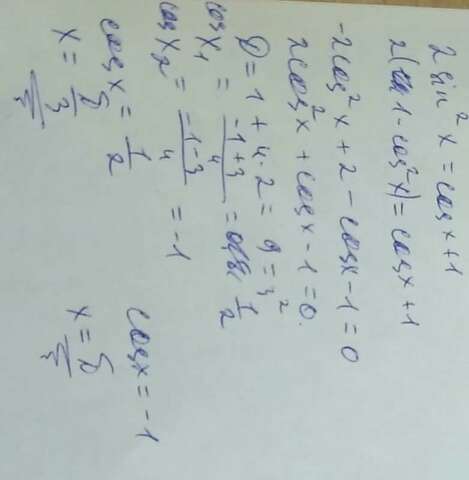 2 sin² x = cos x + 1
2(1 - cos² x) = cos x + 1
-2cos² x + 2 - cos x - 1 = 0
2cos² x + cos x - 1 = 0.
D = 1 + 4·2 = 9 = 3²
cos x₁ = (-1+3)/4 = 1/2
cos x₂ = (-1-3)/4 = -1
cos x = 1/2
x = π/3
cos x = -1
x = π